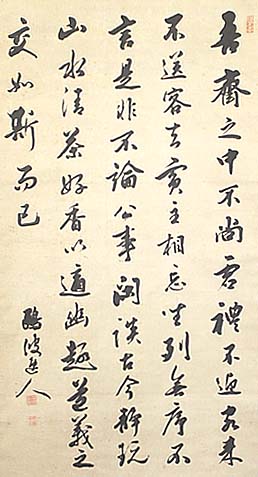 吾齋之中不尚虛禮不迎客來
不送客去賓主相忘坐列無序不
言是非不論公事閑談古今靜玩
山水清茶好香以適幽趣道義之
交如斯而已
波逸人